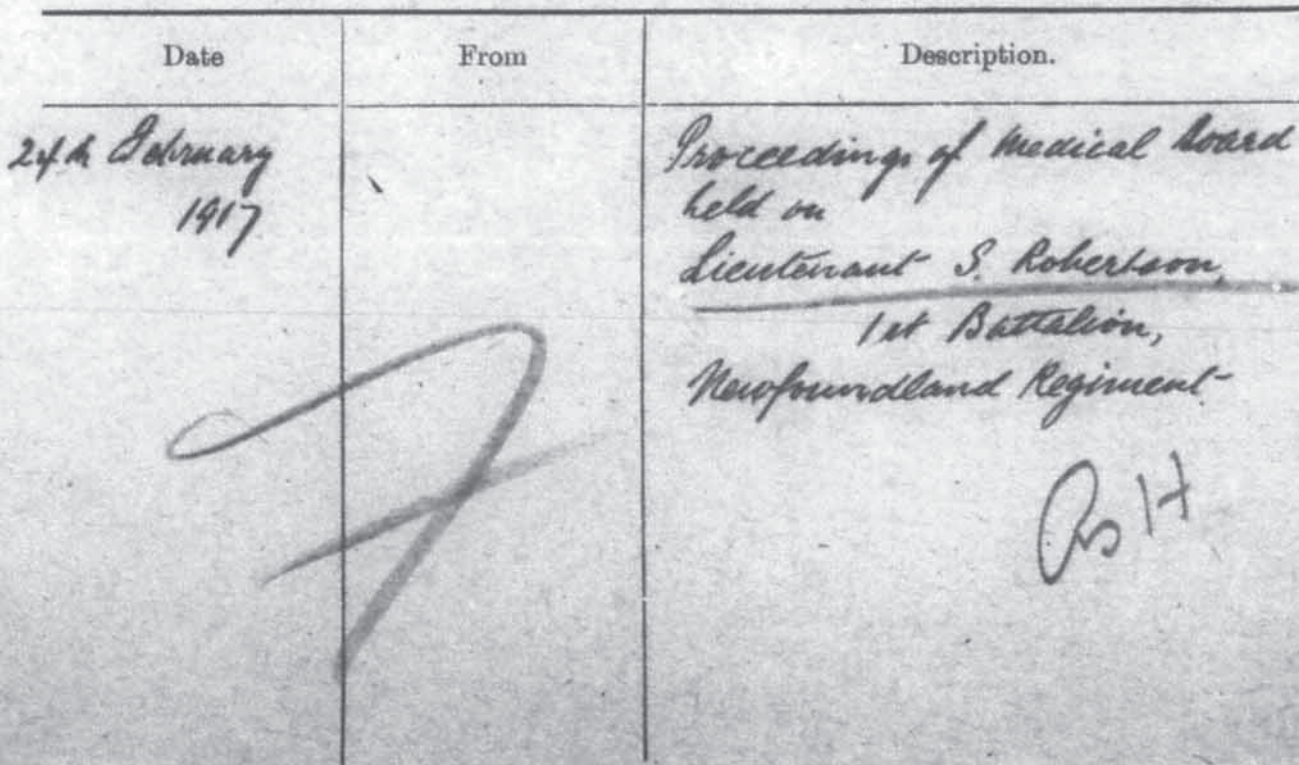 Date From Description.
24th February
1917
Proceedings of Medical Board
held on
Lieutenant S. Robertson,
1st Battalion,
Newfoundland Regiment